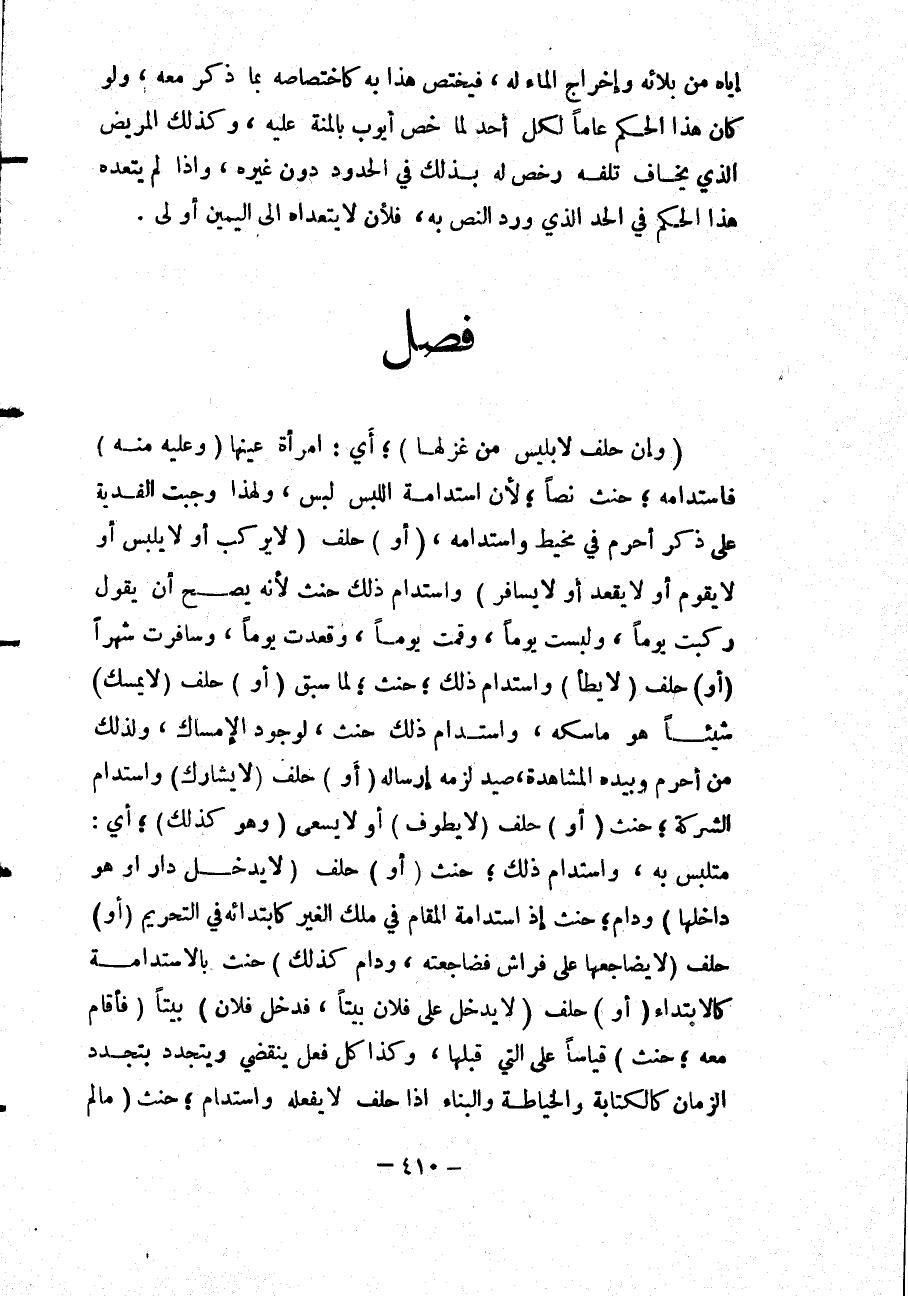 إياه من بلائه وإخراج الماء له ، فيختص هذا به كاختصاصه بما ذكر معه ، ولو
كان هذا الحكم عاماً لكل أحد لما خص أيوب بالمنة عليه ، وكذلك المريض
الذي يخاف تلفه رخص له بذلك في الحدود دون غيره ، واذا لم يتعده
هذا الحكم في الحد الذي ورد النص به ، فلأن لا يتعداه الى اليمين أولى .
فصل
( وإن حلف لابلبس من غزلها ) ؛ أَي : امرأة عينها ( وعليه منه )
فاستدامه ؛ حنث نصاً ؛ لأن استدامة اللبس لبس ، ولهذا وجبت الفدية
على ذكر أحرم في مخيط واستدامه ، ( أو ) حلف ( لايركب أو لايلبس أو
لايقوم أو لايقعد أو لايسافر ) واستدام ذلك حنث لأنه يصح أن يقول
ركبت يوماً ، ولبست يوماً ، وقمت يوماً ، وقعدت يوماً ، وسافرت شهراً
(أو) حلف ( لايطأ ) واستدام ذلك ؛ حنث ؛ لما سبق ( أو ) حلف (لايمسك)
شيئاً هو ماسكه ، واستدام ذلك حنث ، لوجود الإمساك ، ولذلك
من أحرم وبيده المشاهدة،صيد لزمه إرساله ( أَو ) حلف (لايشارك) واستدام
الشركة ؛ حنث ( أو ) حلف (لايطوف ) أو لايسعى ( وهو كذلك) ؛ أي :
متلبس به ، واستدام ذلك ؛ حنث ( أو ) حلف ( لايدخل دار او هو
داخلها ) ودام؛ حنث إذ استدامة المقام في ملك الغير كابتدائه في التحريم (أو)
حلف (لايضاجعها على فراش فضاجعته ، ودام كذلك ) حنث بالاستدامة
كالابتداء ( أو ) حلف ( لايدخل على فلان بيتاً ، فدخل فلان ) بيتاً ( فأقام
معه ؛ حنث ) قياساً على التي قبلها ، وكذا كل فعل ينقضي ويتجدد بتجدد
الزمان كالكتابة والخياطة والبناء اذا حلف لايفعله واستدام ؛ حنث ( مالم
– ٤١٠ –